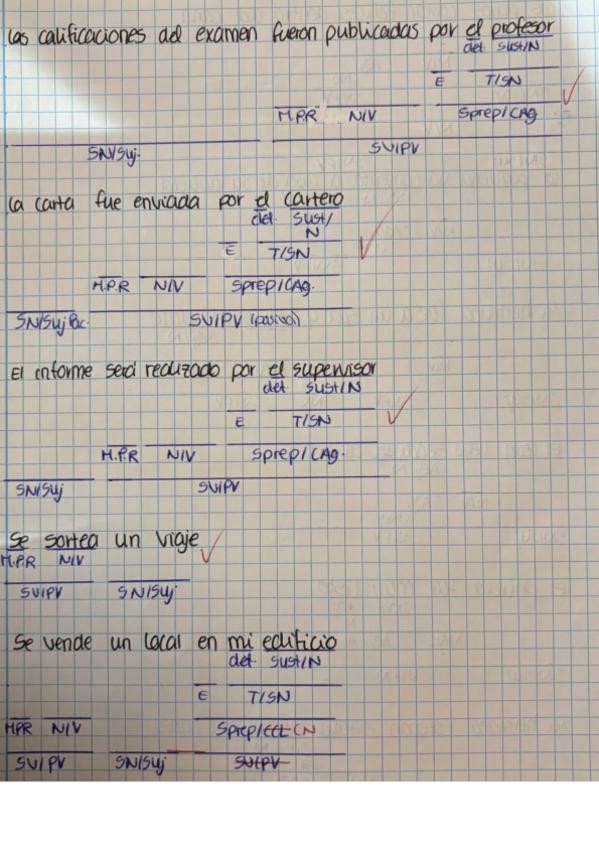 Las calificaciones del examen fueron publicadas por el profesor
det. sust/N
E T/SN
M.P.R N/V Sprep/CAg
SN/Suj. SV/PV
La carta fue enviada por el cartero
det. sust/
N
E T/SN
M.P.R N/V Sprep/CAg.
SN/Suj Pac. SV/PV (pasiva)
El informe será realizado por el supervisor
det. sust/N
E T/SN
M.P.R N/V Sprep/CAg.
SN/Suj SV/PV
Se sortea un viaje
M.P.R N/V
SV/PV SN/Suj
Se vende un local en mi edificio
det. sust/N
E T/SN
MPR N/V Sprep/CCL CN
SV/PV SN/Suj SV/PV